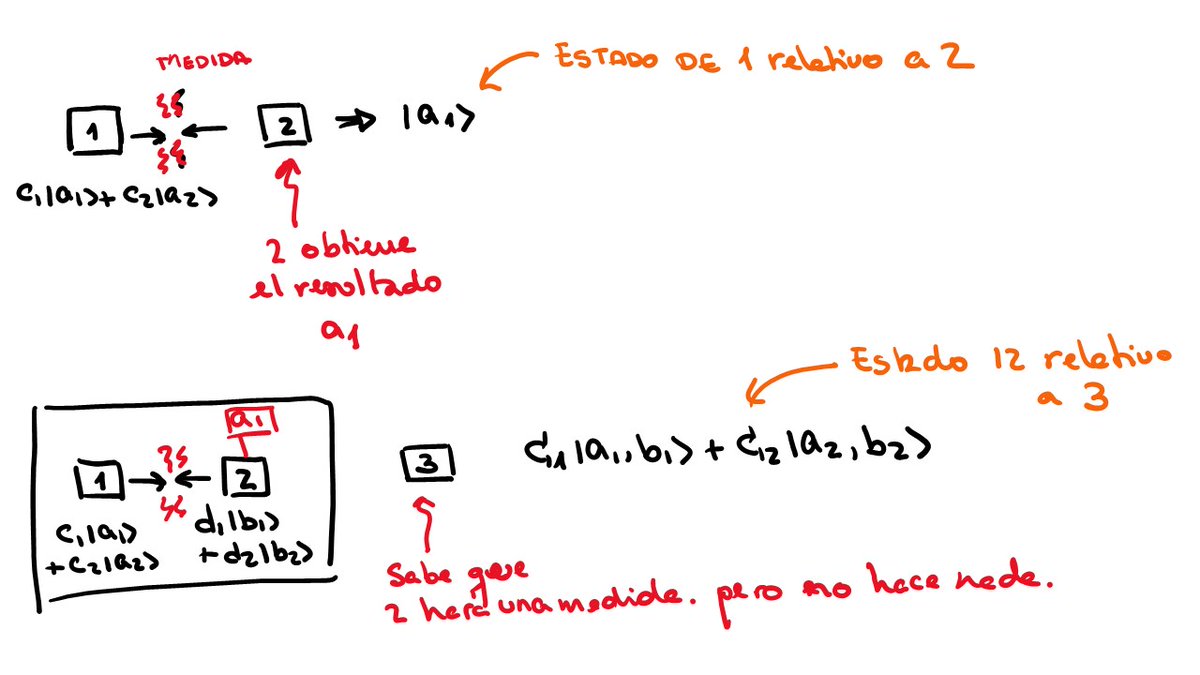 MEDIDA
ESTADO DE 1 relativo a 2
1
2
⇒ |a₁⟩
c₁|a₁⟩+c₂|a₂⟩
2 obtiene
el resultado
a₁
Estado 12 relativo
a 3
a₁
1
2
3
c₁|a₁,b₁⟩ + c₂|a₂,b₂⟩
c₁|a₁⟩
+c₂|a₂⟩
d₁|b₁⟩
+d₂|b₂⟩
Sabe que
2 hará una medida. pero no hace nada.